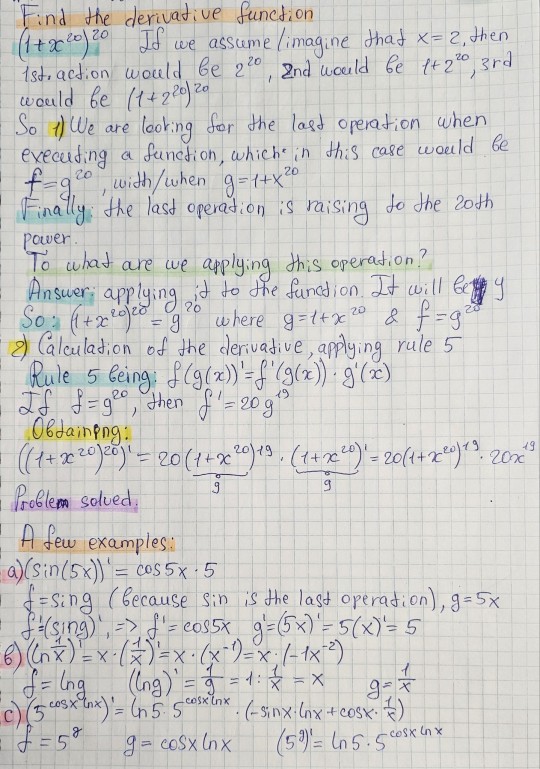 Find the derivative function
(1+x²⁰)²⁰ If we assume/imagine that x=2, then
1st. action would be 2²⁰, 2nd would be 1+2²⁰, 3rd
would be (1+2²⁰)²⁰
So 1) We are looking for the last operation when
executing a function, which in this case would be
f=g²⁰, with/when g=1+x²⁰
Finally: the last operation is raising to the 20th
power.
To what are we applying this operation?
Answer: applying it to the function. It will be y
So: (1+x²⁰)²⁰ = g²⁰ where g=1+x²⁰ & f=g²⁰
2) Calculation of the derivative, applying rule 5
Rule 5 being: f(g(x))'=f'(g(x))·g'(x)
If f=g²⁰, then f'=20g¹⁹
Obtaining:
((1+x²⁰)²⁰)' = 20(1+x²⁰)¹⁹ · (1+x²⁰)' = 20(1+x²⁰)¹⁹ · 20x¹⁹
g g
Problem solved.
A few examples:
a) (sin(5x))' = cos5x·5
f=sing (because sin is the last operation), g=5x
f'=(sing)', => f'=cos5x g'=(5x)'=5(x)'=5
b) (ln 1/x)'=x·(1/x)'=x·(x⁻¹)=x·(-1x⁻²)
f=lng (lng)'=1/g=1:1/x=x g=1/x
c) (5^cosx lnx)'=ln5·5^cosx lnx·(-sinx·lnx+cosx·1/x)
f=5^g g=cosx lnx (5^g)'=ln5·5^cosx lnx